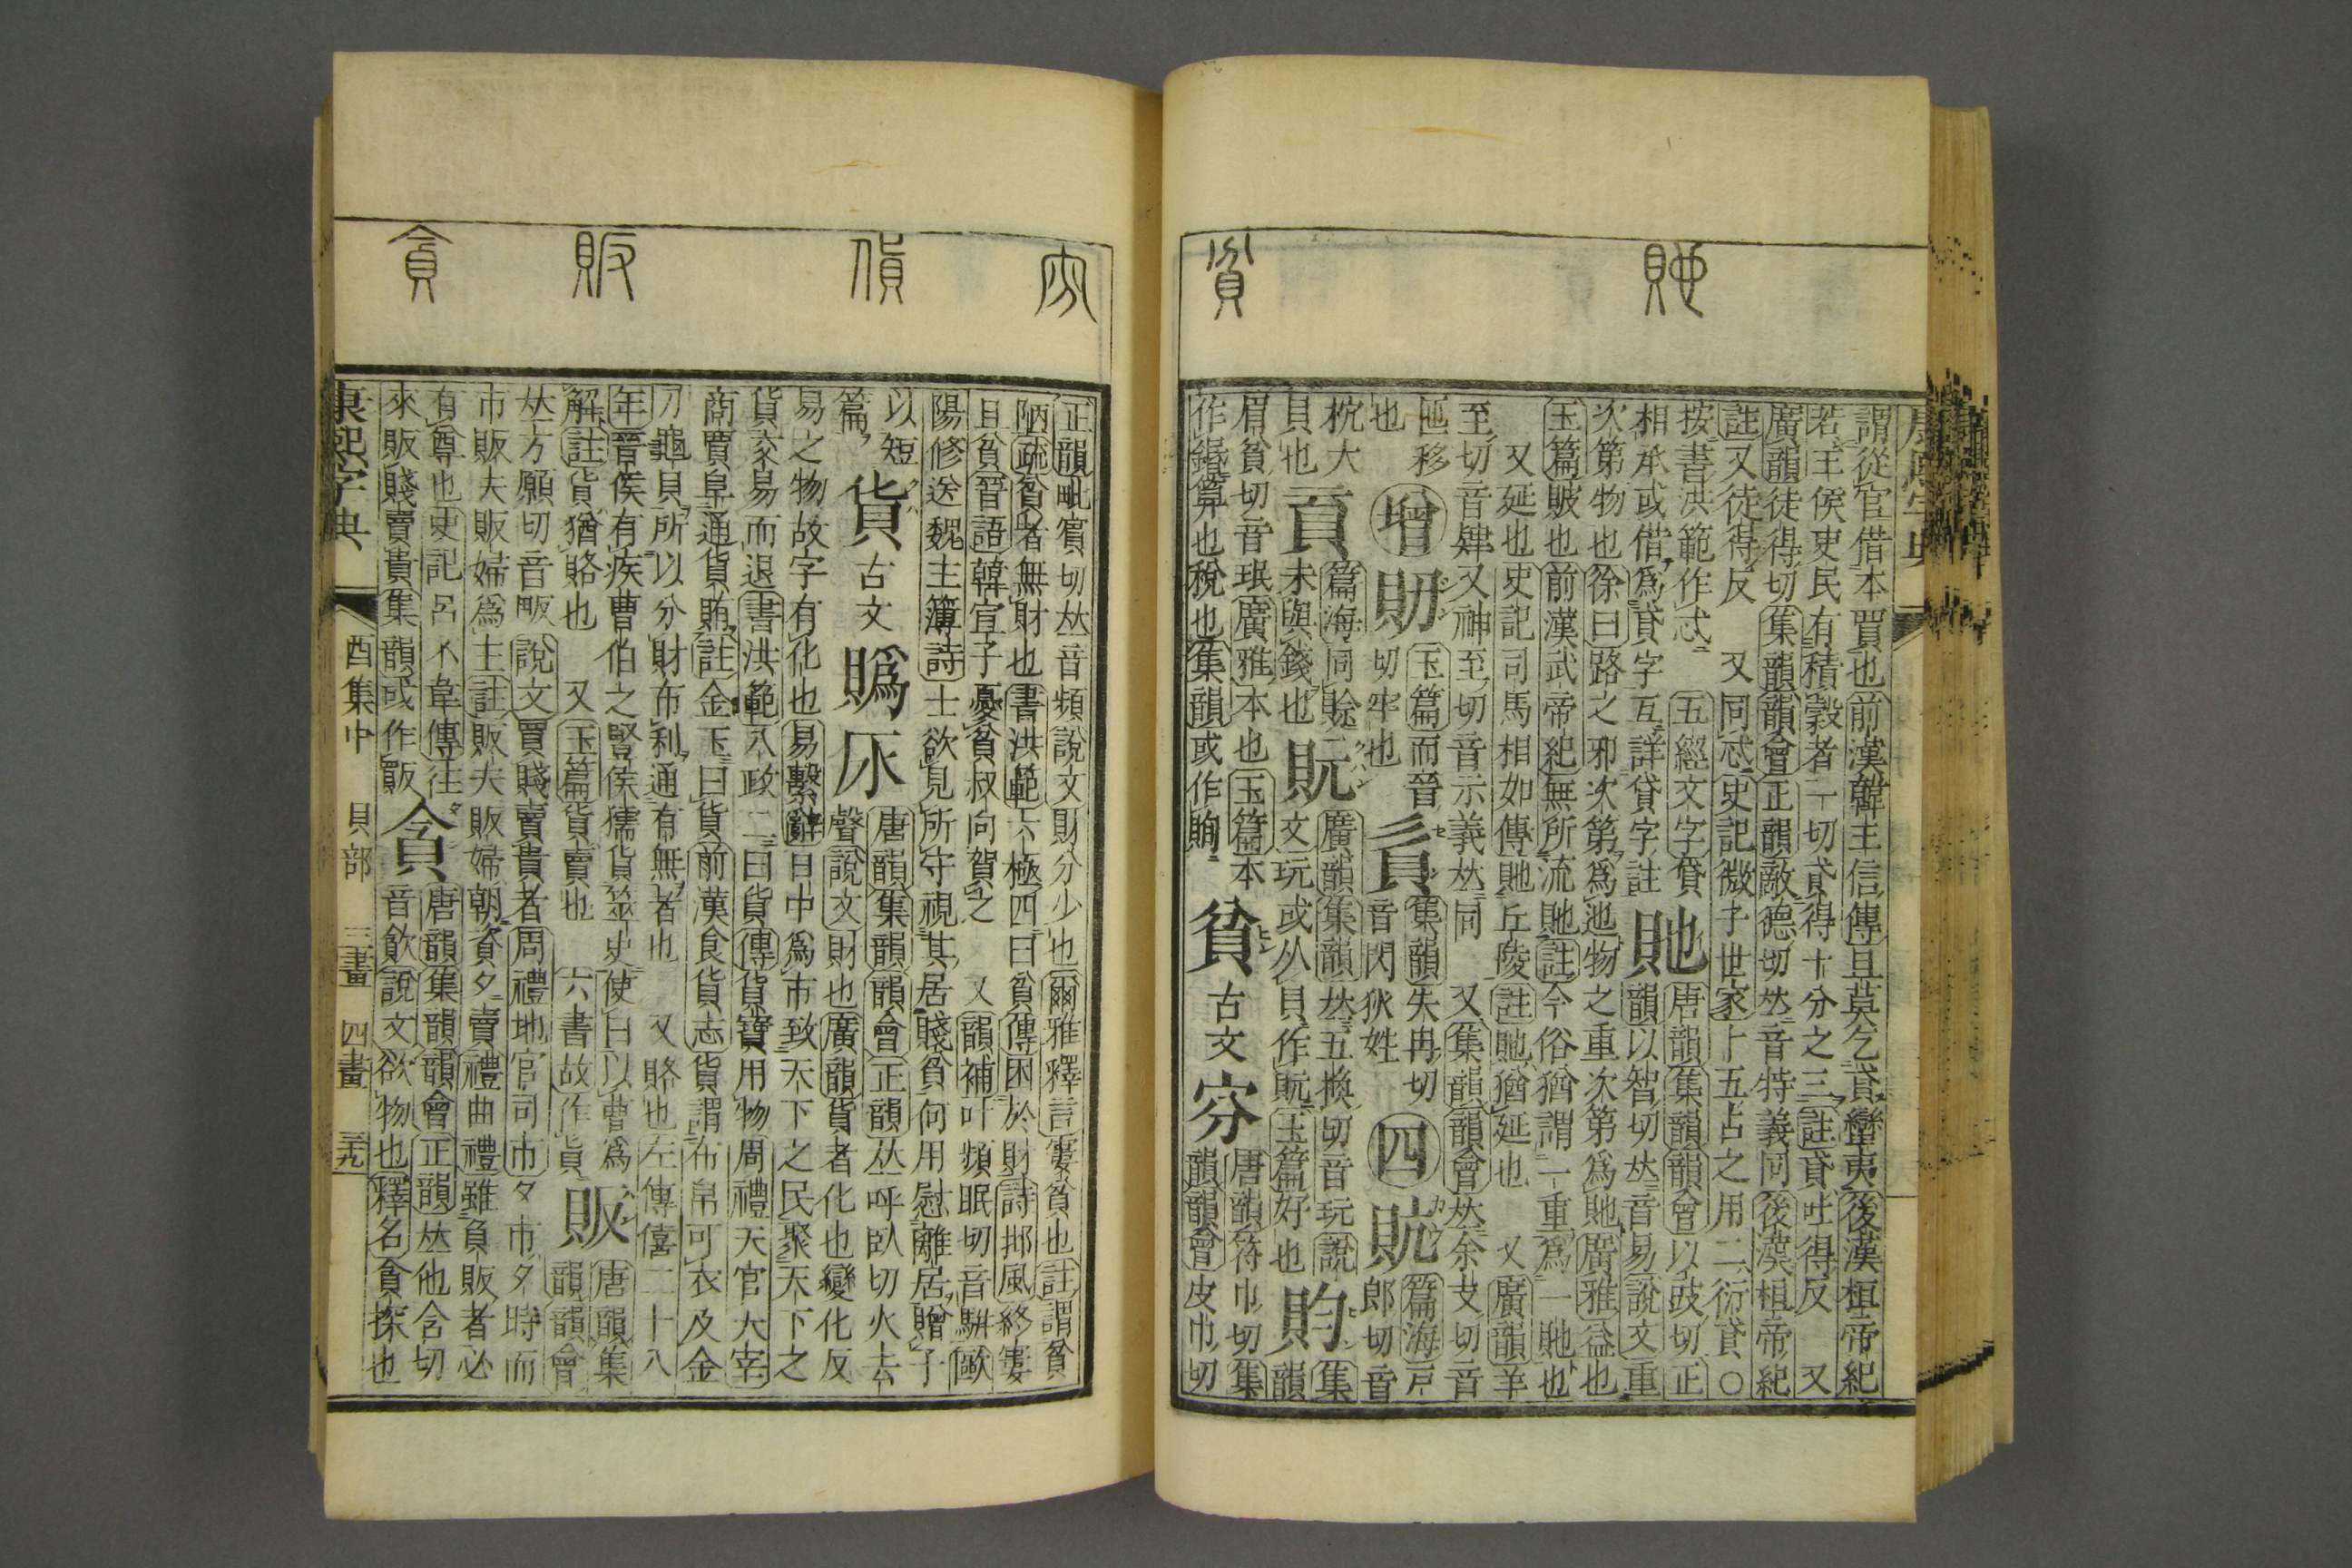 康熙字典
貤
貧
謂從官借本賈也前漢韓王信傳旦莫乞貣蠻夷後漢桓帝紀
若王侯吏民有積穀者一切貣得十分之三註貣吐得反 又
廣韻徒得切集韻韻會正韻敵德切𠀤音特義同後漢桓帝紀
註又徒得反 又同忒史記微子世家卜五占之用二衍貣○
按書洪範作忒 五經文字貸
相承或借爲貸字互詳貸字註
貤
唐韻集韻韻會以豉切正
韻以智切𠀤音易說文重
次第物也徐曰路之邪次第爲迆物之重次第爲貤廣雅益也
玉篇貱也前漢武帝紀無所流貤註今俗猶謂一重爲一貤也
又延也史記司馬相如傳貤丘陵註貤猶延也 又廣韻羊
至切音肄又神至切音示義𠀤同 又集韻韻會𠀤余支切音
匜移
也
增
玉篇而晉
切牢也
集韻失冉切
音閃狄姓
四
貥
篇海戸
郎切音
杭大
貝也
篇海同賒
未與錢也
貦
廣韻集韻𠀤五換切音玩說
文玩或从貝作貦玉篇好也
䝧
集
韻
眉貧切音珉廣雅本也玉篇本
作鍲算也稅也集韻或作
貧 古文 穷
唐韻符巾切集
韻韻會皮巾切
貨
販
貪
正韻毗賓切𠀤音頻說文財分少也爾雅釋言窶貧也註謂貧
陋疏貧者無財也書洪範六極四曰貧傳困於財詩邶風終窶
且貧晉語韓宣子憂貧叔向賀之 又韻補叶頻眠切音駢歐
陽修送魏主簿詩士欲見所守視其居賤貧何用慰離居贈子
以短
篇
貨 古文 䞈
唐韻集韻韻會正韻𠀤呼臥切火去
聲說文財也廣韻貨者化也變化反
易之物故字有化也易繫辭日中爲市致天下之民聚天下之
貨交易而退書洪範八政二曰貨傳貨寶用物周禮天官大宰
商賈阜通貨賄註金玉曰貨前漢食貨志貨謂布帛可衣及金
刀龜貝所以分財布利通有無者也 又賂也左傳僖二十八
年晉侯有疾曹伯之豎侯獳貨筮史使曰以曹爲
解註貨猶賂也 又玉篇貨賣也 六書故作貨
販
唐韻集
韻韻會
𠀤方願切音畈說文買賤賣貴者周禮地官司市夕市夕時而
市販夫販婦爲主註販夫販婦朝資夕賣禮曲禮雖負販者必
有尊也史記呂不韋傳往
來販賤賣貴集韻或作𧸘
貪
唐韻集韻韻會正韻𠀤他含切
音飮說文欲物也釋名貪探也
康熙字典 酉集中 貝部 三畫 四畫 三十九